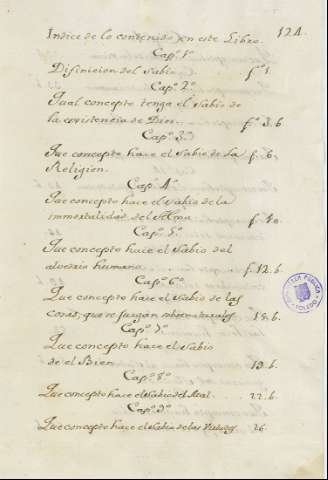 Indice de lo contenido en este Libro. 124.
Cap.º 1º
Difinicion del Sabio. fº 1.
Cap.º 2.º
Qual concepto tenga el Sabio de
la existencia de Dios fº 3. b.
Cap.º 3.º
Que concepto hace el Sabio de la f. 6.
Religion.
Cap.º 4.º
Que concepto hace el Sabio de la
immortalidad del Alma f. 10.
Cap.º 5.º
Que concepto hace el Sabio del
alvedrio humano f. 12. b.
Cap.º 6.º
Que concepto hace el Sabio de las
cosas, que se juzgan sobrenaturales 15. b.
Cap.º 7.º
Que concepto hace el Sabio
de el Bien 19. b.
Cap.º 8.º
Que concepto hace el Sabio del Mal 22. b.
Cap.º 9.º
Que concepto hace el Sabio de las Virtudes 26.
PUBLICA
TOLEDO